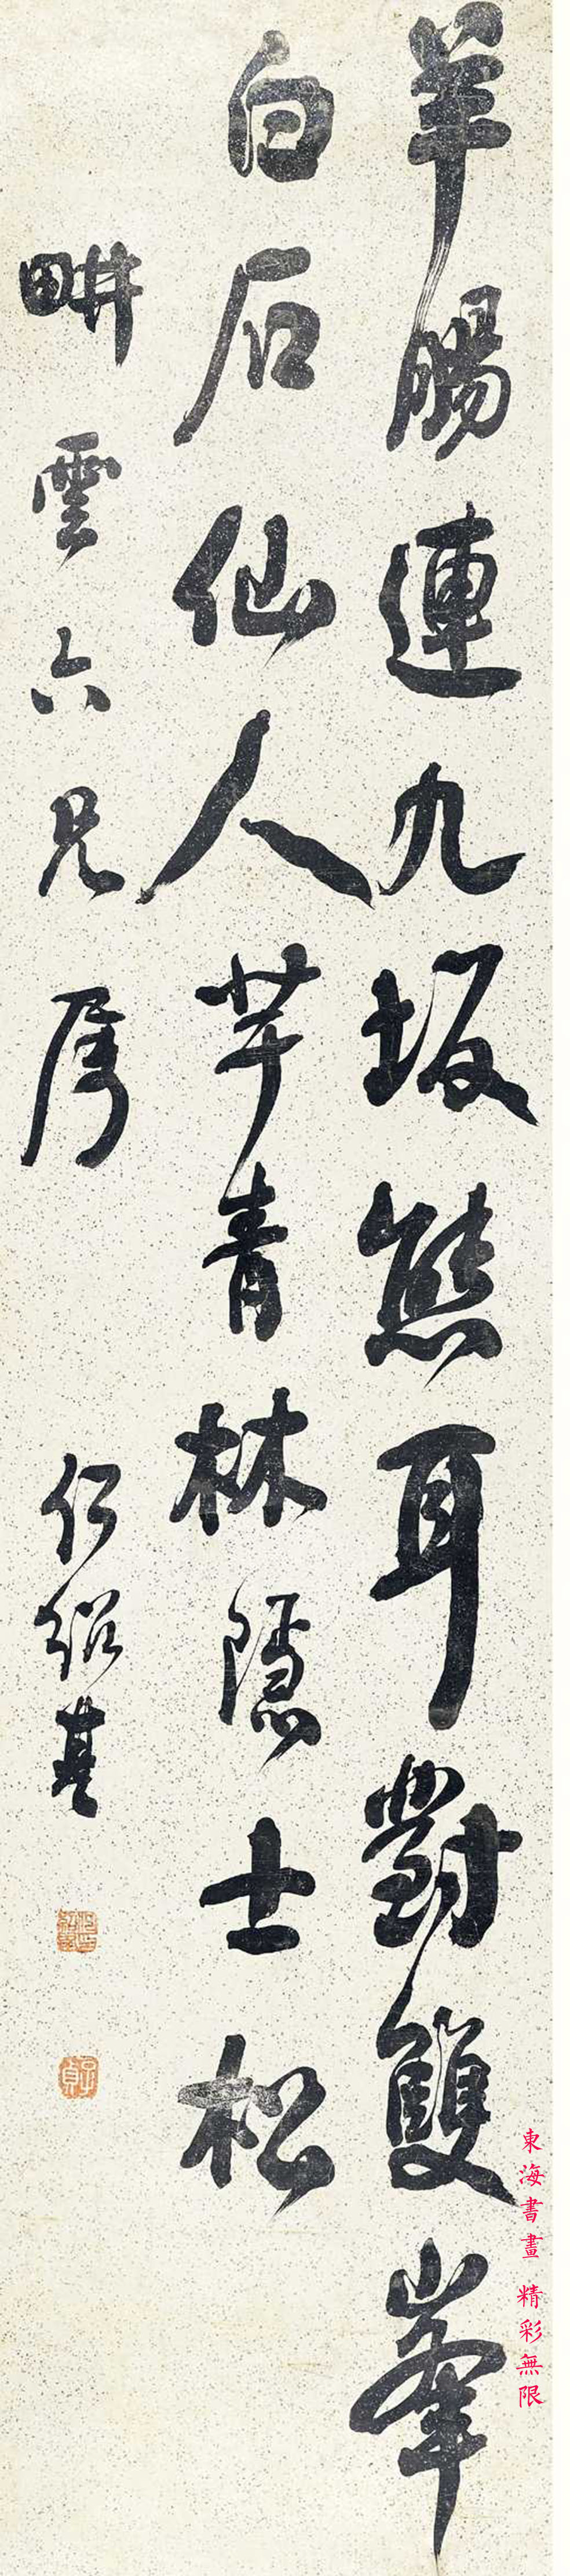 羊腸連九坂熊耳對雙峯
白石仙人芋青林隱士松
畊雲六兄属
何紹基
子貞
東海書畫 精彩無限